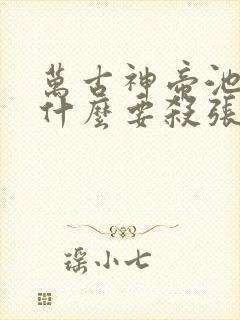 萬古神帝池
什麼要殺張
瑶小七